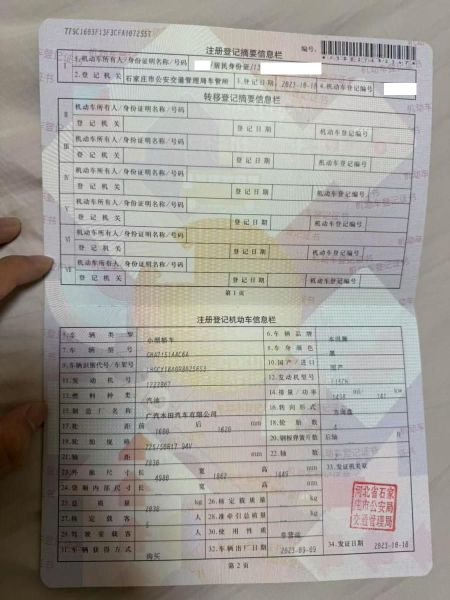 注册登记摘要信息栏
编号:
I
1.机动车所有人/身份证明名称/号码
/居民身份证/
2.登记机关 石家庄市公安交通管理局车管所 3.登记日期 2023-10-18 4.机动车登记编号
转移登记摘要信息栏
II 机动车所有人/身份证明名称/号码
登记机关 登记日期 机动车登记编号
III 机动车所有人/身份证明名称/号码
登记机关 登记日期 机动车登记编号
IV 机动车所有人/身份证明名称/号码
登记机关 登记日期 机动车登记编号
V 机动车所有人/身份证明名称/号码
登记机关 登记日期 机动车登记编号
VI 机动车所有人/身份证明名称/号码
登记机关 登记日期 机动车登记编号
VII 机动车所有人/身份证明名称/号码
登记机关 登记日期 机动车登记编号
第1页
注册登记机动车信息栏
5.车辆类型 小型轿车 6.车辆品牌 本田牌
7.车辆型号 8.车身颜色 黑
9.车辆识别代号/车架号 10.国产/进口 国产
11.发动机号 12.发动机型号
13.燃料种类 汽油 14.排量/功率 ml/ kw
15.制造厂名称 广汽本田汽车有限公司 16.转向形式 方向盘
17.轮距 前 1600 后 1620 mm 18.轮胎数 4
19.轮胎规格 225/50R17 94V 20.钢板弹簧片数 后轴 片
21.轴距 mm 22.轴数
23.外廓尺寸 长 4980 宽 1862 高 1449 mm 33.发证机关章
24.货箱内部尺寸 长 宽 高 mm
25.总质量 kg 26.核定载质量 kg
27.核定载客 5 人 28.准牵引总质量 kg
29.驾驶室载客 人 30.使用性质 非营运
31.车辆获得方式 购买 32.车辆出厂日期 2023-09-09 34.发证日期 2023-10-18
河北省石家
庄市公安局
交通管理局
第2页